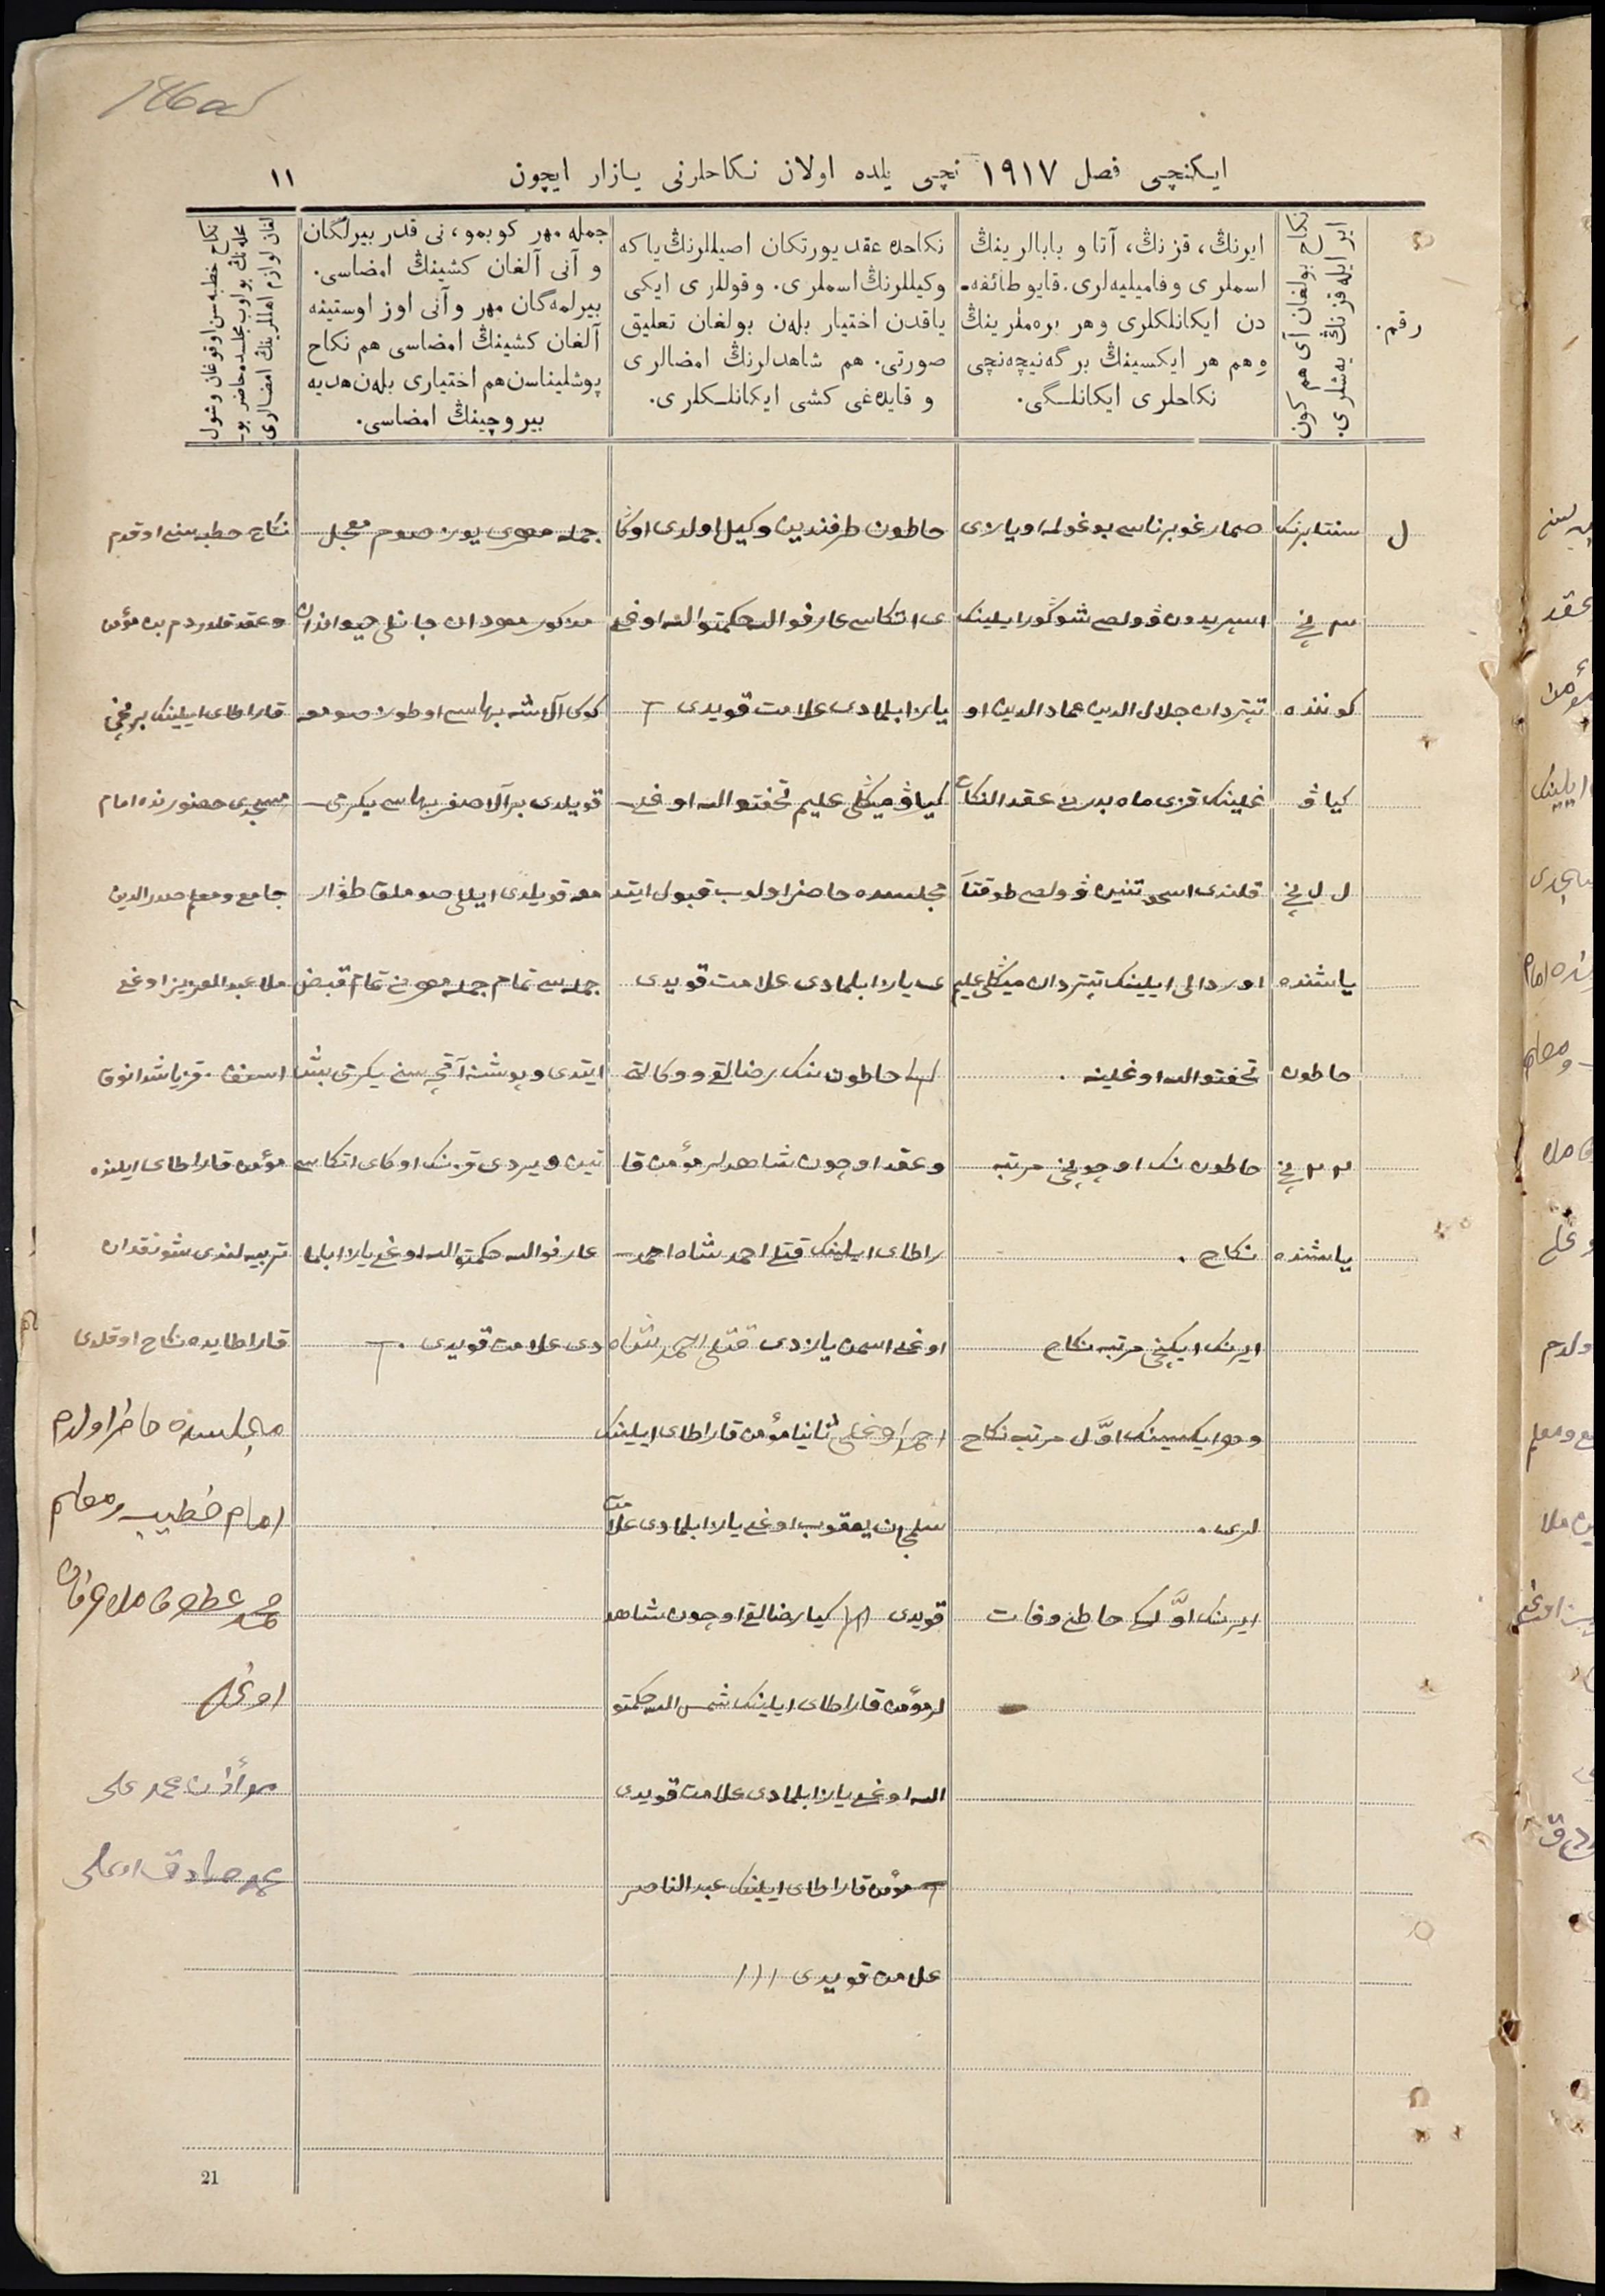 ایکنچی فصل ۱۹۱۷ نچی یلده اولان نکاحلرنی یازار ایچون
۱۱
رقم.
نکاح بولغان آی هم کون
ایر ایله قزنڭ یەشلری.
ایرنڭ، قزنڭ، آتا و بابالرینڭ
اسملری و فامیلیەلری. قایو طائفه‌
دن ایکانلکلری وهر برەملرینڭ
وهم هر ایکسینڭ برگه نیچەنچی
نکاحلری ایکانلگی.
نکاحده عقد یورتکان اصیللرنڭ یاکه
وکیللرنڭ اسملری. وقوللری ایکی
یاقدن اختیار بلەن بولغان تعلیق
صورتی. هم شاهدلرنڭ امضالری
و قایدەغی کشی ایکانلکلری.
جمله مهر کوبمو، نی قدر بیرلگان
و آنی آلغان کشینڭ امضاسی.
بیرلمەگان مهر وآنی اوز اوستینه
آلغان کشینڭ امضاسی هم نکاح
پوشلیناسن هم اختیاری بلەن هدیه
بیروچینڭ امضاسی.
نکاح خطبه‌سن اوقوغان وشول
محلەنڭ بولوب مجلسده حاضر بو
لغان لوازم اهللرینڭ امضالری
سنتابرنک
۳ نچی
کوننده
کیاڤ
یاشنده
خاطون
۲۲ نچی
یاشنده
صمار غوبرناسی بوغولمه اویازی
اسپریدون ڤولصی شوگور ایلینک
تپتردان جلال الدین عماد الدین او
غلینک قزی ماه بدرنی عقد النکاح
قلندی
اوردالی ایلینک تپتردان میڭلی علیم
تحفت‌الله اوغلینه .
خاطون نک اوچونچی مرتبه
نکاح .
ایرنک ایکنچی مرتبه نکاح
وهر ایکیسینک اوّل مرتبه نکاح
لری .
ایرنک اوّلکی خاطنی وفات
خاطون طرفندین وکیل اولدی اوگا
ی اتکاسی عارف‌الله حکمت‌الله اوغلی
یازا بلمادی علامت قویدی
کیاڤ میڭلی علیم تحفت‌الله اوغلی
مجلسده حاضر اولوب قبول ایتد
ی یازا بلمادی علامت قویدی
خاطون ننک رضالقی و وکالة
و عقد اوچون شاهدلر مؤمن قا
راطای ایلینک قتلی احمد شاه احمد
اوغلی اسمن یازدی قتلی احمد شاه
احمد اوغلی ثانیا مؤمن قاراطای ایلینک
سلیمان یعقوب اوغلی یازا بلمادی علامت
قویدی کیاو رضالقی اوچون شاهد
لر مؤمن قاراطای ایلینک شمس الله حکمت
الله اوغلی یازا بلمادی علامت قویدی
مؤمن قاراطای ایلینک عبد الناصر
علامت قویدی
جمله مهری یوز صوم معجل
مذکور مهردان جانلی حیواندان
کوک آلاشه بهاسی اوطوز صومغه
قویلدی بر آلا صغر بهاسی یکرمی
غه قویلدی ایللی صوملق طوار
جمله‌سی تمام جمله مهرنی تمام قبض
ایتدی و پوشنه آقچه سنی یکرمی بش
تین ویردی قزنک اوگای اتکاسی
عارف‌الله حکمت‌الله اوغلی یازا بلما
دی علامت قویدی .
نکاح خطبه سنی اوقدم
وعقد قلدردم بن مؤمن
قاراطای ایلینک برنچی
مسجدی حضورنده امام
جامع ومعلم صدرالدین
ملا عبدالعزیز اوغلی
مؤمن قاراطای ایلنده
تربیه‌لندی شونقدان
قاراطایده نکاح اوقلدی
مجلسده حاضر اولدم
امام خطیب ومعلم
اوغلی
مؤاذن محمد علی
محمد صادق اوغلی
21